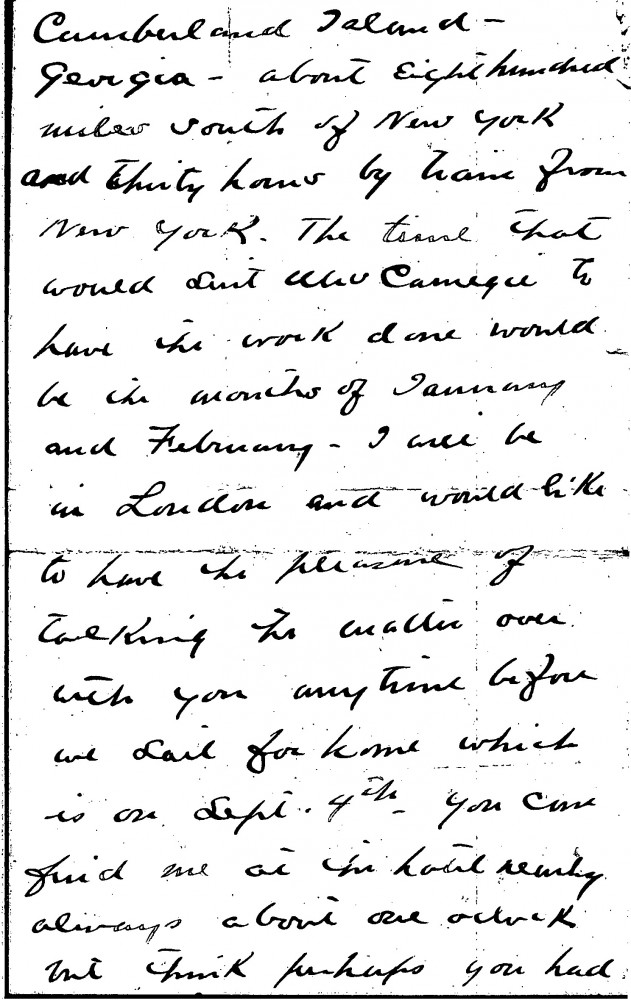 Cumberland Island -
Georgia - about Eight hundred
miles South of New York
and thirty hours by train from
New York. The time that
would suit Mrs Carnegie to
have the work done would
be the months of January
and February - I will be
in London and would like
to have the pleasure of
talking the matter over
with you any time before
we sail for home which
is on Sept. 4th - You can
find me at the hotel nearly
always about one oclock
but think perhaps you had